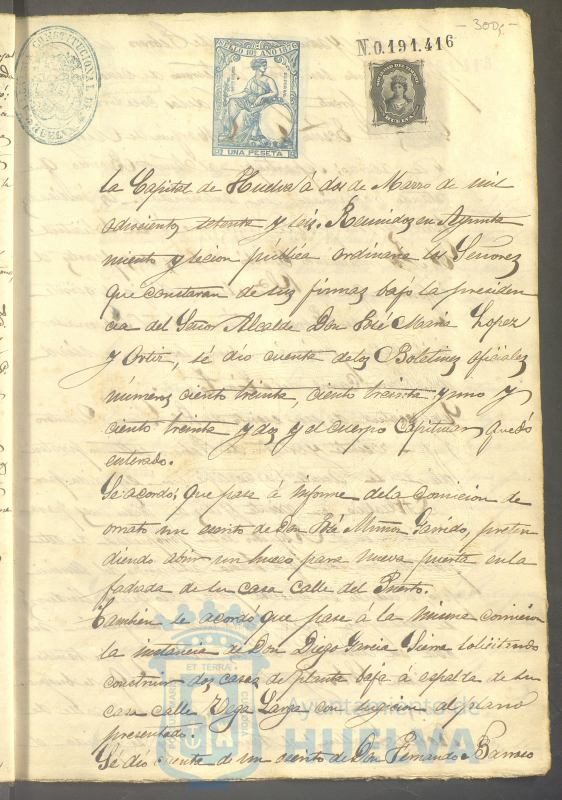 300,-
N.0.191.416
SELLO 10º AÑO 1876
UNA PESETA
HUELVA
CONSTITUCIONAL DE
HUELVA
la Capital de Huelva á dos de Marzo de mil
ochocientos setenta y seis. Reunidos en Ayunta
miento y sesion pública ordinaria los Señores
que constaran de sus firmas bajo la presiden
cia del Señor Alcalde Don José Maria Lopez
y Ortiz, se dio cuenta de los Boletines oficiales
números ciento treinta, ciento treinta y uno y
ciento treinta y dos y el cuerpo Capitular quedó
enterado.
Se acordó: Que pase á informe de la Comicion de
ornato un escrito de Don José Muñoz Garrido, preten
diendo abrir un hueco para nueva puerta en la
fachada de su casa calle del Puerto.
Tambien se acordó que pase á la misma comicion
la instancia de Don Diego Garcia Sierra solicitando
construir dos casas de planta baja á espalda de su
casa calle Vega Larga con sugecion al plano
presentado.
Se dió cuenta de un escrito de Don Fernando Barroso
ET TERRA
Ayuntamiento de
HUELVA